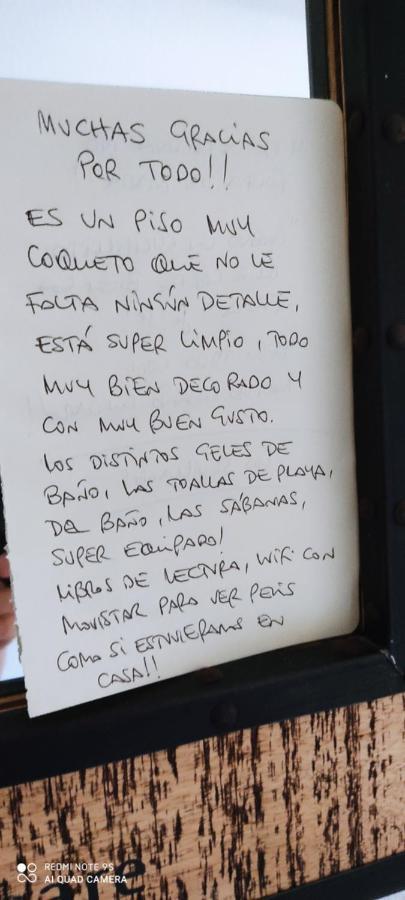 MUCHAS GRACIAS
POR TODO!!
ES UN PISO MUY
COQUETO QUE NO LE
FALTA NINGÚN DETALLE,
ESTÁ SUPER LIMPIO, TODO
MUY BIEN DECORADO Y
CON MUY BUEN GUSTO.
LOS DISTINTOS GELES DE
BAÑO, LAS TOALLAS DE PLAYA,
DE BAÑO, LAS SÁBANAS,
SUPER EQUIPADO!
LIBROS DE LECTURA, WIFI CON
MOVISTAR PARA VER PELIS
COMO SI ESTUVIERAMOS EN
CASA!!
REDMI NOTE 9S
AI QUAD CAMERA